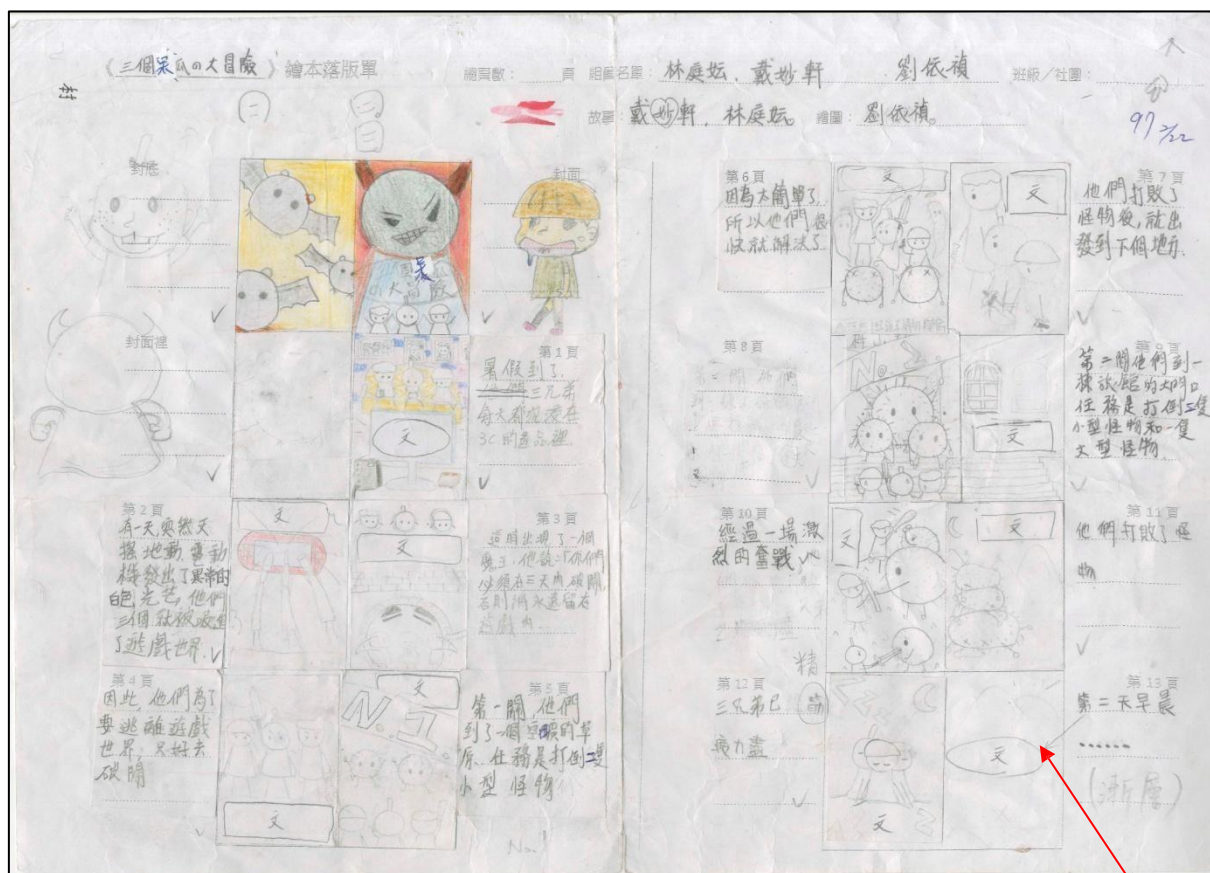 《三個呆瓜の大冒險》繪本落版單
總頁數：　　頁
組員名單：林庭妘、戴妙軒　劉依禎
班級／社團：
村
故事：戴妙軒．林庭妘。
繪圖：劉依禎。
97 2/22
封底
封面
呆
大冒險
封面裡
第1頁
暑假到了，
三兄弟
每天都沉浸在
3C的產品裡
文
第2頁
有一天，突然天
搖地動，電動
機發出了異常的
白色光芒，他們
三個就被吸進
了遊戲世界．
文
文
第3頁
這時出現了一個
魔王，他說：「你們
必須在三天內破關，
否則將永遠留在
遊戲內
第4頁
因此，他們為了
要逃離遊戲
世界，只好去
破關
文
文
N.1
第5頁
第一關，他們
到了一個空曠的草
原，任務是打倒二隻
小型怪物
No.1
第6頁
因為太簡單了，
所以他們很
快就解決了
文
文
第7頁
他們打敗了
怪物後，就出
發到下個地方．
第8頁
文
第9頁
第二關他們到一
棟旅館的大門口
任務是打倒二隻
小型怪物和一隻
大型怪物
第10頁
經過一場激
烈的奮戰
文
文
第11頁
他們打敗了怪
物
第12頁
精
三兄弟已筋
疲力盡
文
文
第13頁
第二天早晨
……
(漸層)